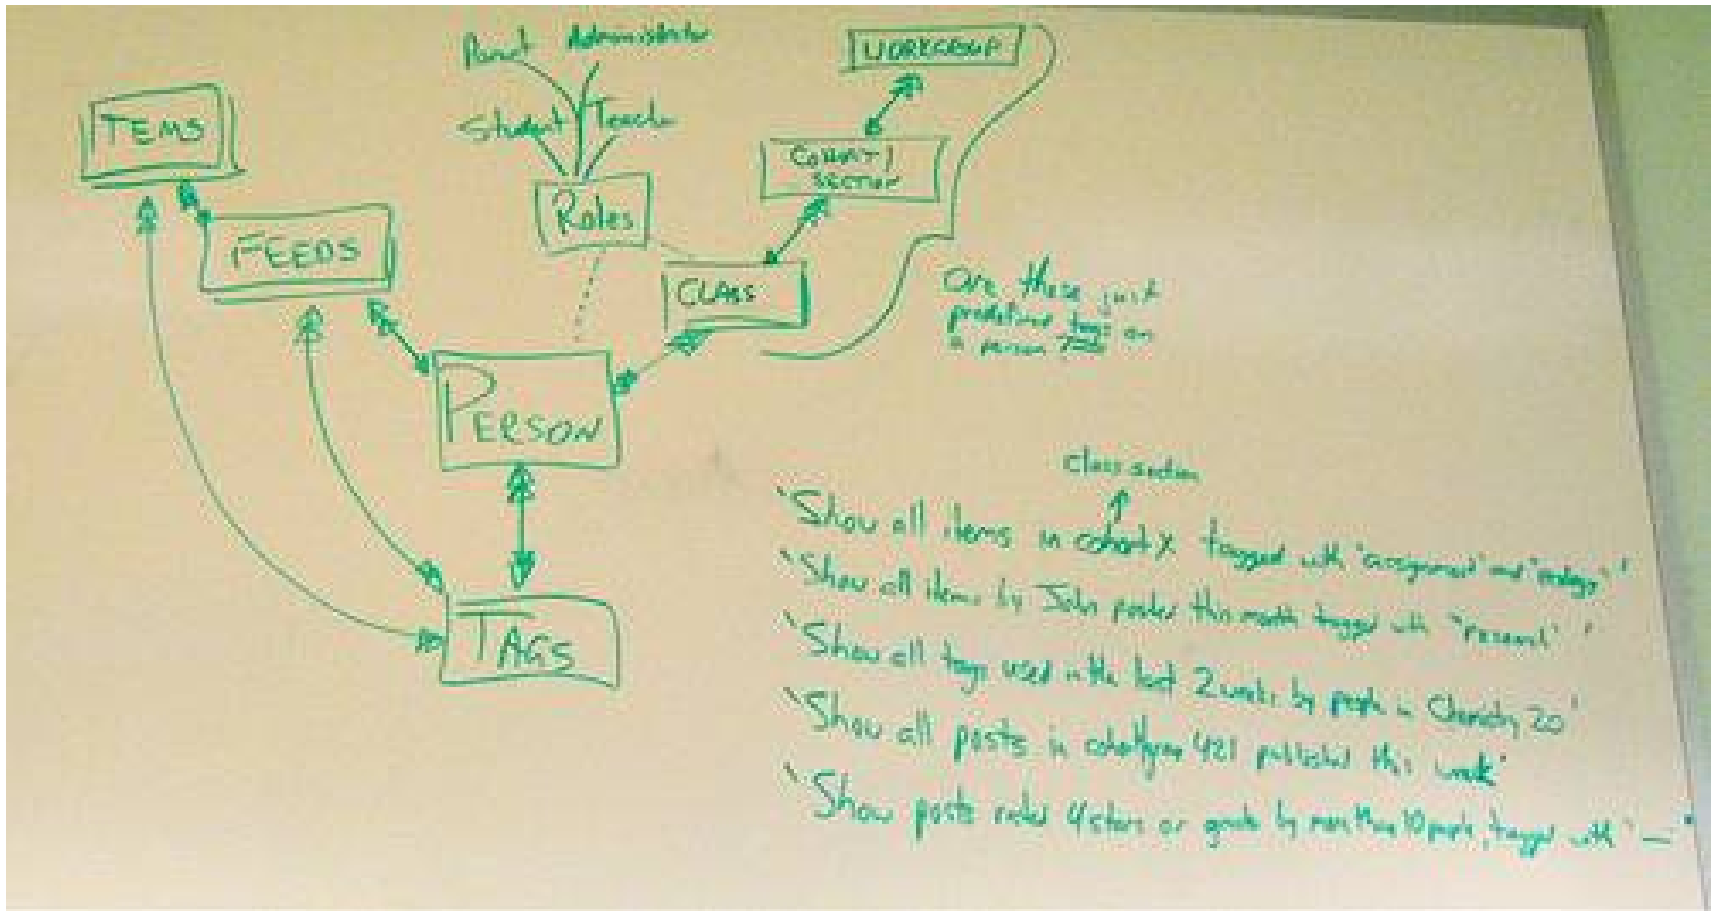 Parent Administrator
Student Teacher
Roles
WORKGROUP
COHORT/
SECTION
CLASS
ITEMS
FEEDS
PERSON
TAGS
are these just
predefined tags on
a person
class section
"Show all items in cohort X tagged with "assignment" and
"Show all items by John posted this month tagged with "research"
"Show all tags used in the last 2 weeks by people in Chemistry 20"
"Show all posts in 421 published this week"
"Show posts rated 4 stars or by more than 10 people, tagged with "—"